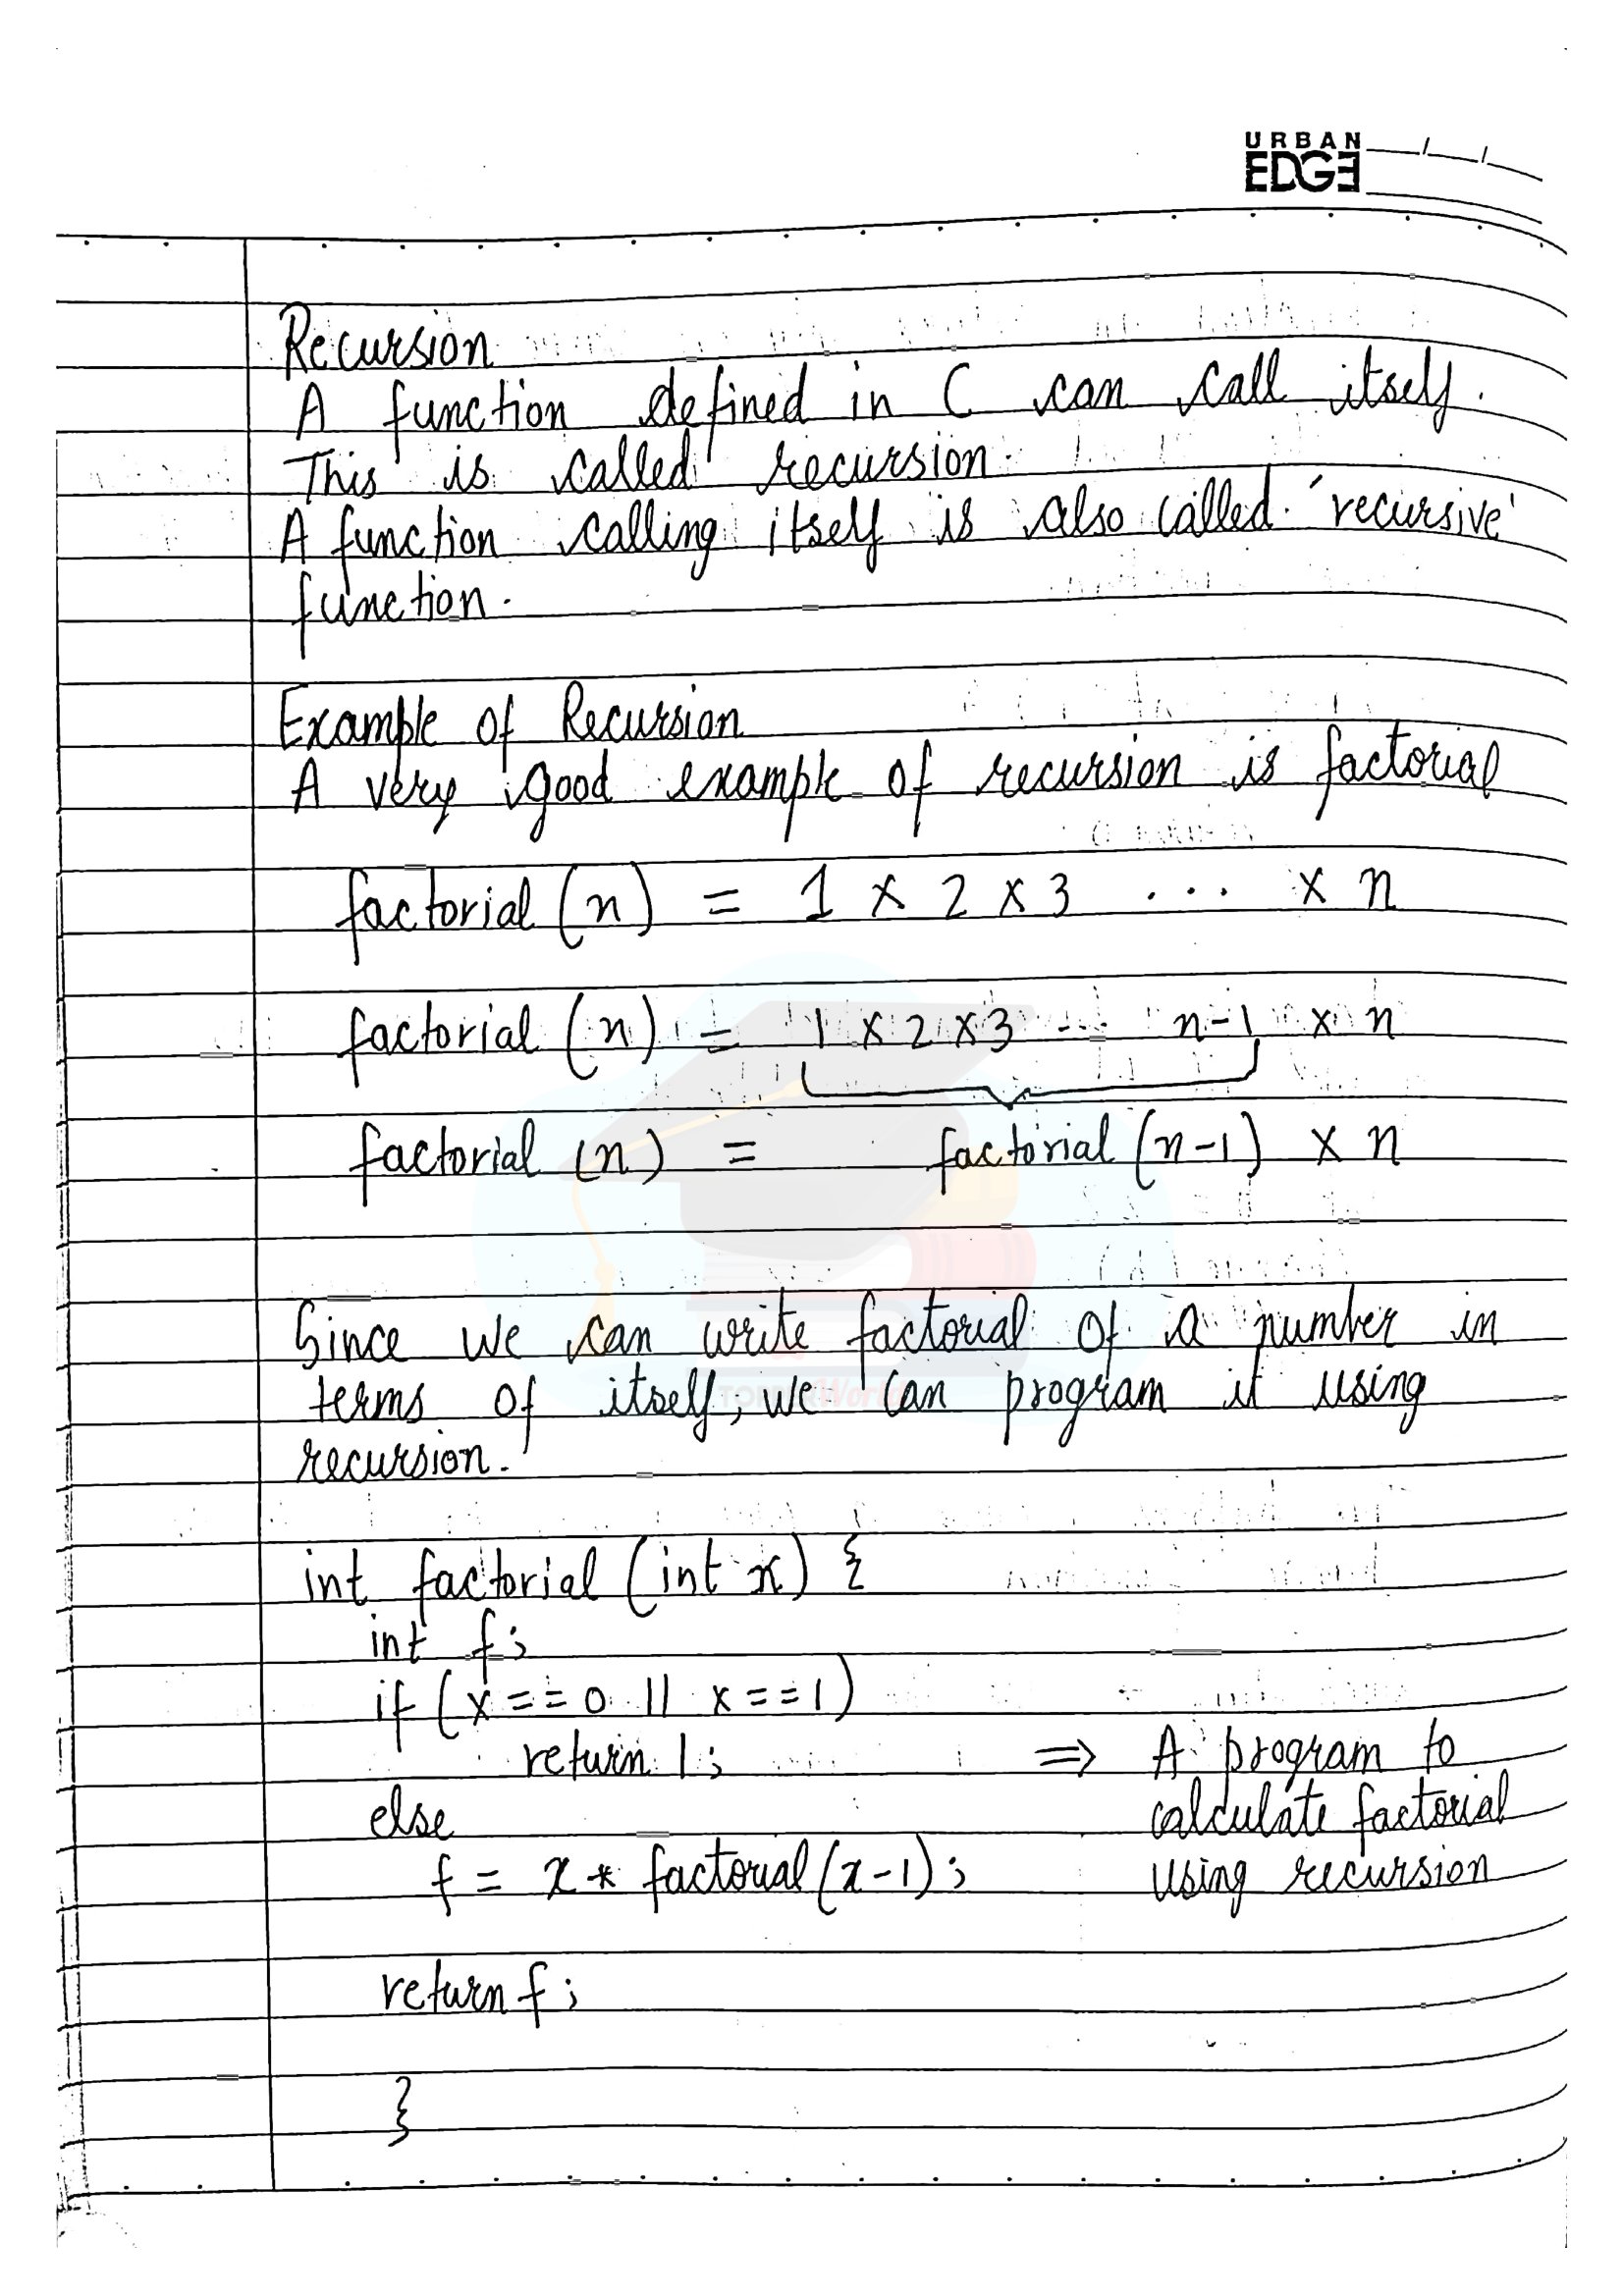 URBAN
EDGE
Recursion
A function defined in C can call itself.
This is called recursion.
A function calling itself is also called 'recursive'
function.
Example of Recursion
A very good example of recursion is factorial
factorial (n) = 1 × 2 × 3 ... × n
factorial (n) = 1 × 2 × 3 ... n-1 × n
factorial (n) = factorial (n-1) × n
Since we can write factorial of a number in
terms of itself, we can program it using
TOPPERWorld
recursion.
int factorial (int x) {
int f;
if (x == 0 || x == 1)
return 1; ⇒ A program to
else calculate factorial
f = x * factorial (x-1); using recursion
return f;
}